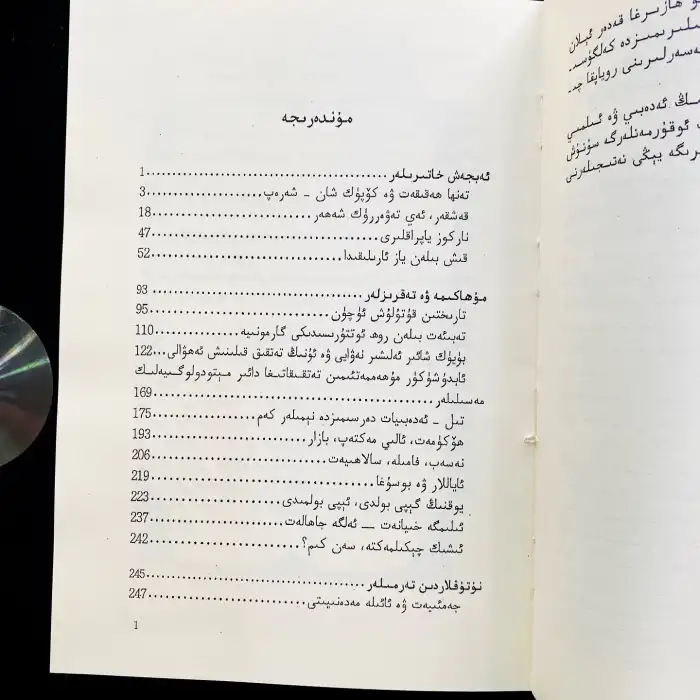 مۇندەرىجە
ئەبجەش خاتىرىلەر........1
تەنھا ھەقىقەت ۋە كۆپۈك شان ـ شەرەپ........3
قەشقەر، ئەي تەۋەررۈك شەھەر........18
ناركوز ياپراقلىرى........47
قىش بىلەن ياز ئارىلىقىدا........52
مۇھاكىمە ۋە تەقرىزلەر........93
تارىختىن قۇتۇلۇش ئۈچۈن........95
تەبىئەت بىلەن روھ ئوتتۇرىسىدىكى گارمونىيە........110
بۈيۈك شائىر ئەلىشىر نەۋايى ۋە ئۇنىڭ تەتقىق قىلىنىش ئەھۋالى...122
ئابدۇشۈكۈر مۇھەممەتئىمىن تەتقىقاتىغا دائىر مېتودولوگىيەلىك
مەسىلىلەر........169
تىل ـ ئەدەبىيات دەرسىمىزدە نېمىلەر كەم........175
ھۆكۈمەت، ئالىي مەكتەپ، بازار........193
نەسەب، فامىلە، سالاھىيەت........206
ئاياللار ۋە بوسۇغا........219
يوقنىڭ گېپى بولدى، ئېپى بولمىدى........223
ئىلىمگە خىيانەت — ئەلگە جاھالەت........237
ئىشىك چېكىلمەكتە، سەن كىم؟........242
نۇتۇقلاردىن تەرمىلەر........245
جەمئىيەت ۋە ئائىلە مەدەنىيىتى........247
1
ھازىرغا قەدەر ئېلان
كەلگۈسىـ
رويابقا چىـ
ئەدەبىي ۋە ئىلمىي
ئوقۇرمەنلەرگە سۇنۇش
يېڭى نەتىجىلەرنى